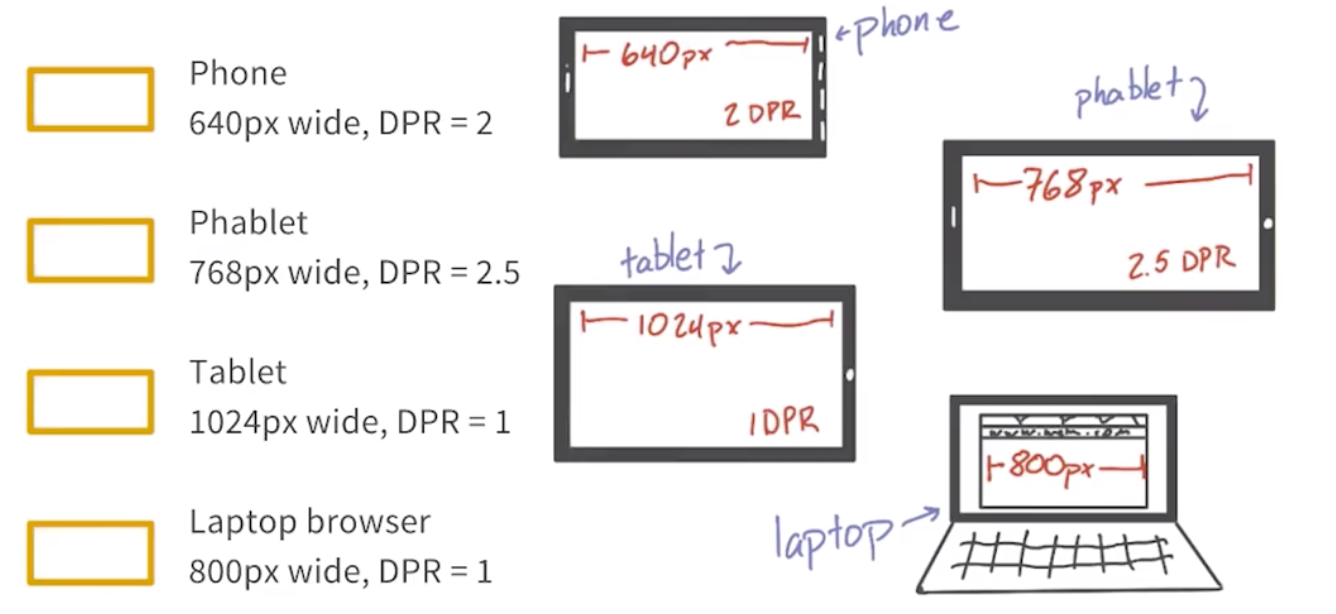 Phone
640px wide, DPR = 2
Phablet
768px wide, DPR = 2.5
Tablet
1024px wide, DPR = 1
Laptop browser
800px wide, DPR = 1
phone
640px
2 DPR
phablet
768px
2.5 DPR
tablet
1024px
1 DPR
800px
laptop